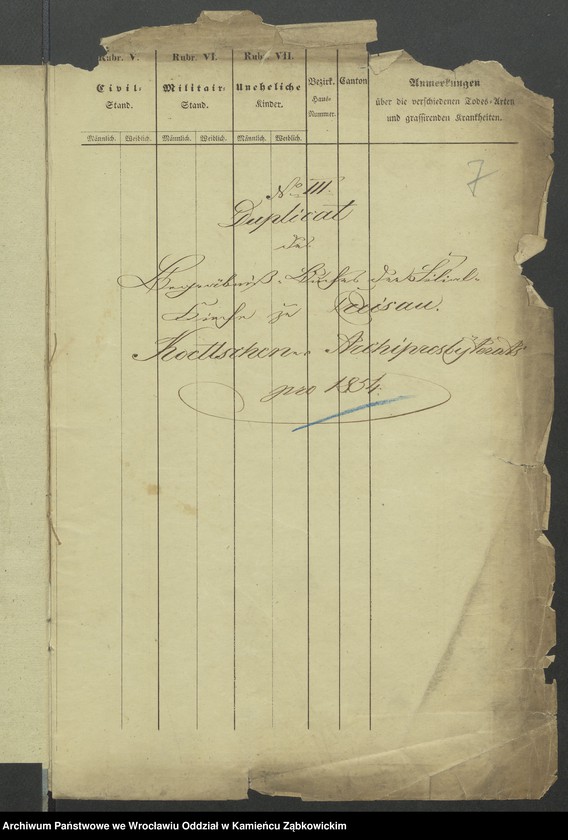 Rubr. V. Rubr. VI. Rubr. VII.
Civil- Stand. Militair- Stand. Uneheliche Kinder. Bezirk. Haus- Nummer. Canton Anmerkungen
über die verschiedenen Todes-Arten
und grassirenden Krankheiten.
Männlich. Weiblich. Männlich. Weiblich. Männlich. Weiblich.
7
No III.
Duplicat
des
Begräbniß-Buches der Filial-
Kirche zu Creisau.
Koeltschen Archipresbyterats
pro 1854.
Archiwum Państwowe we Wrocławiu Oddział w Kamieńcu Ząbkowickim